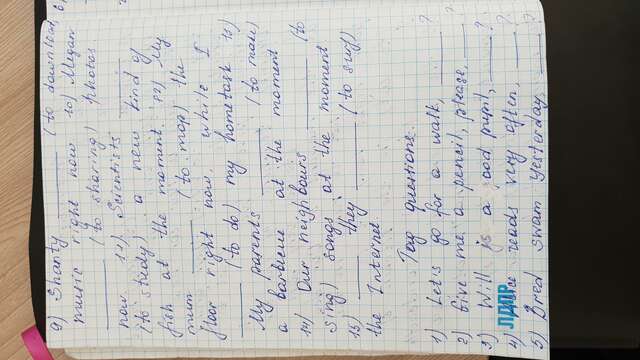 9) Shanty ______ (to download)
music right now 10) Megan
______ (to sharing) photos
now 11) Scientists ______
(to study) a new kind of
fish at the moment 12) My
mum ______ (to mop) the
floor right now while I
______ (to do) my hometask 13)
My parents ______ (to make)
a barbecue at the moment
14) Our neighbours ______ (to
sing) songs at the moment
15) ______ they ______ (to surf)
the Internet
Tag questions.
1) Let's go for a walk, ______?
2) Give me a pencil, please, ______?
3) Will is a good pupil, ______?
4) reads very often, ______?
5) Bred swam yesterday, ______?
ЛДПР